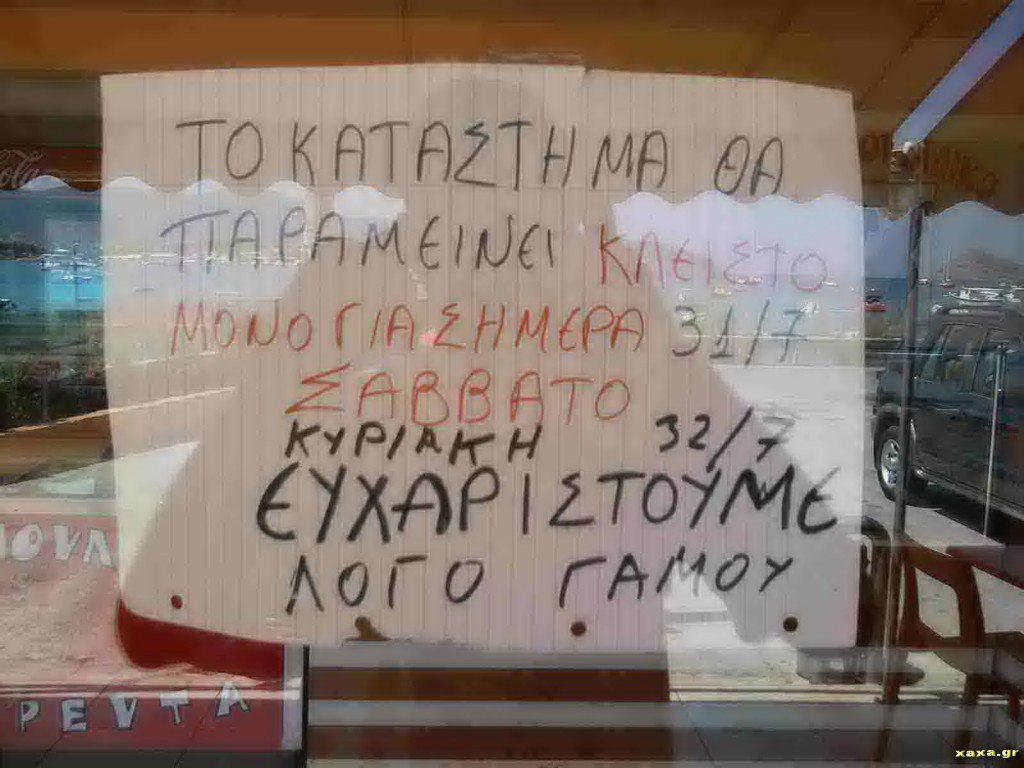 ΤΟ ΚΑΤΑΣΤΗΜΑ ΘΑ
ΠΑΡΑΜΕΙΝΕΙ ΚΛΕΙΣΤΟ
ΜΟΝΟ ΓΙΑ ΣΗΜΕΡΑ 31/7
ΣΑΒΒΑΤΟ
ΚΥΡΙΑΚΗ 32/7
ΕΥΧΑΡΙΣΤΟΥΜΕ
ΛΟΓΟ ΓΑΜΟΥ
Cola
xaxa.gr